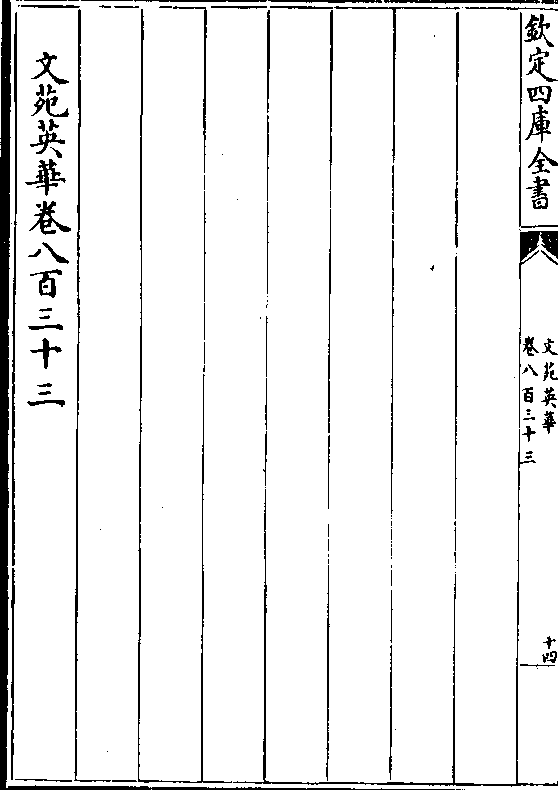 欽定四庫全書
文苑英華
卷八百三十三
十四
文苑英華卷八百三十三